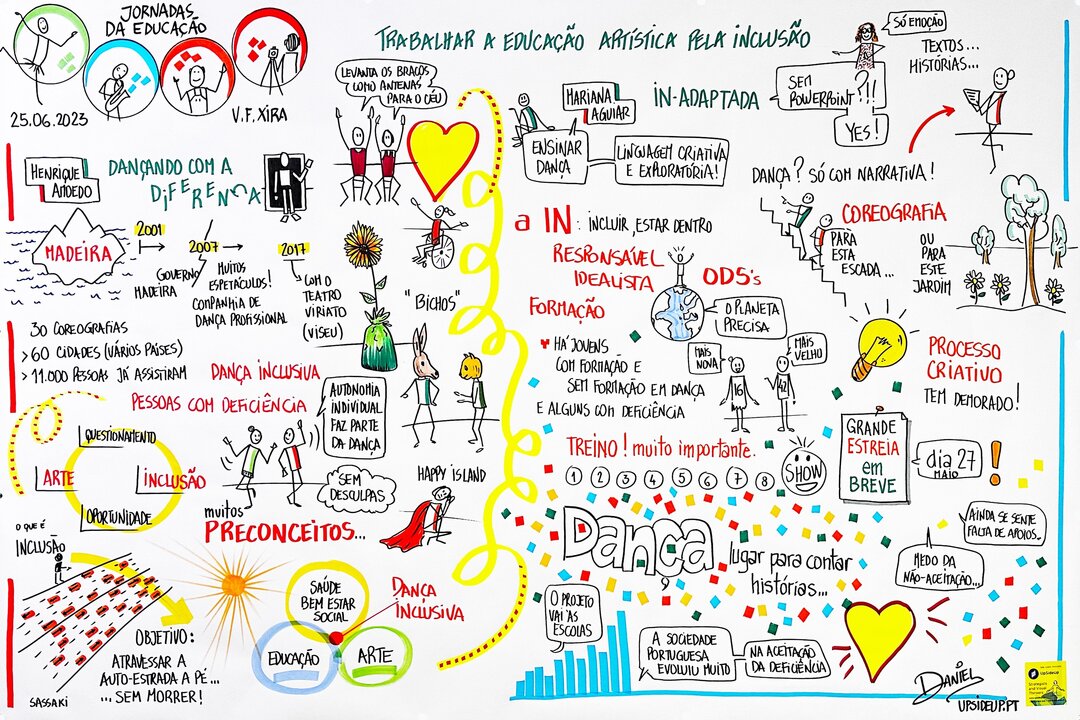 JORNADAS
DA EDUCAÇÃO
25.06.2023
V.F.XIRA
TRABALHAR A EDUCAÇÃO ARTÍSTICA PELA INCLUSÃO
HENRIQUE
AMOEDO
DANÇANDO COM A
DiFERENÇA
LEVANTA OS BRAÇOS
COMO ANTENAS
PARA O CÉU
MADEIRA
2001
GOVERNO
MADEIRA
2007
MUITOS
ESPETÁCULOS!
COMPANHIA DE
DANÇA PROFISSIONAL
2017
COM O
TEATRO
VIRIATO
(VISEU)
"BICHOS"
30 COREOGRAFIAS
> 60 CIDADES (VÁRIOS PAÍSES)
> 11.000 PESSOAS JÁ ASSISTIRAM
DANÇA INCLUSIVA
PESSOAS COM DEFICIÊNCIA
AUTONOMIA
INDIVIDUAL
FAZ PARTE
DA DANÇA
QUESTIONAMENTO
ARTE
INCLUSÃO
OPORTUNIDADE
SEM
DESCULPAS
HAPPY ISLAND
muitos
PRECONCEITOS...
O QUE É
INCLUSÃO
OBJETIVO:
ATRAVESSAR A
AUTO-ESTRADA A PÉ...
... SEM MORRER!
SASSAKI
SAÚDE
BEM ESTAR
SOCIAL
EDUCAÇÃO
ARTE
DANÇA
INCLUSIVA
MARIANA
AGUIAR
ENSINAR
DANÇA
LINGUAGEM CRIATIVA
E EXPLORATÓRIA!
IN-ADAPTADA
SEM
POWERPOINT?!!
YES!
SÓ EMOÇÃO
TEXTOS...
HISTÓRIAS...
DANÇA? SÓ COM NARRATIVA!
COREOGRAFIA
PARA
ESTA
ESCADA...
OU
PARA
ESTE
JARDIM
a IN: INCLUIR, ESTAR DENTRO
RESPONSÁVEL
IDEALISTA
FORMAÇÃO
ODS's
O PLANETA
PRECISA
HÁ JOVENS
COM FORMAÇÃO E
SEM FORMAÇÃO EM DANÇA
E ALGUNS COM DEFICIÊNCIA
MAIS
NOVA
16
MAIS
VELHO
42
PROCESSO
CRIATIVO
TEM DEMORADO!
TREINO! muito importante.
1 2 3 4 5 6 7 8
SHOW
GRANDE
ESTREIA
em
BREVE
dia 27
MAIO
Dança
lugar para contar
histórias...
AINDA SE SENTE
FALTA DE APOIOS.
MEDO DA
NÃO-ACEITAÇÃO...
O PROJETO
VAI ÀS
ESCOLAS
A SOCIEDADE
PORTUGUESA
EVOLUIU MUITO
NA ACEITAÇÃO
DA DEFICIÊNCIA
DANIEL
UPSIDEUP.PT
UpSideUp